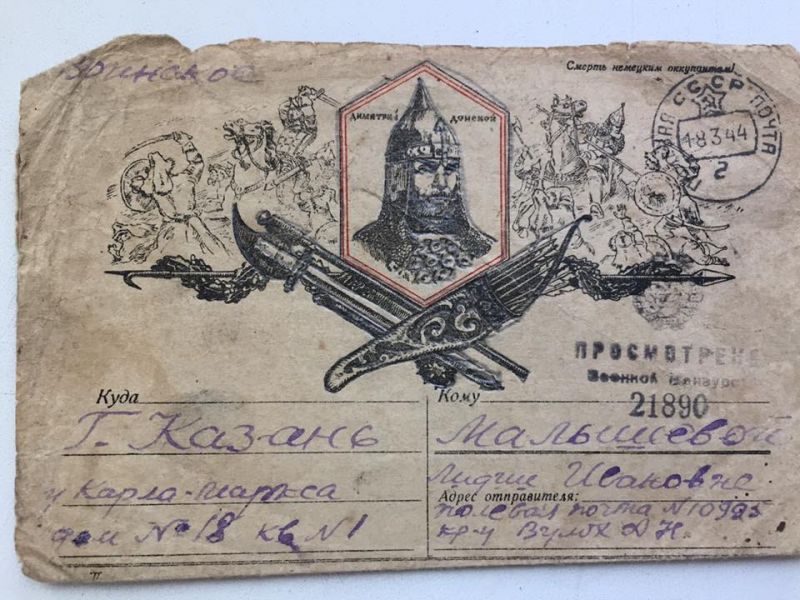 Воинское
Смерть немецким оккупантам!
ДИМИТРИЙ ДОНСКОЙ
СССР ПОЧТА
18 3 44
2
ПРОСМОТРЕНО
Военной Цензурой
21890
Куда
Г. Казань
у Карла-Маркса
дом № 18 кв N 1
Кому
Малышевой
Лидие Ивановне
Адрес отправителя:
полевая почта N 10995
кр-у Вулох Д Н.